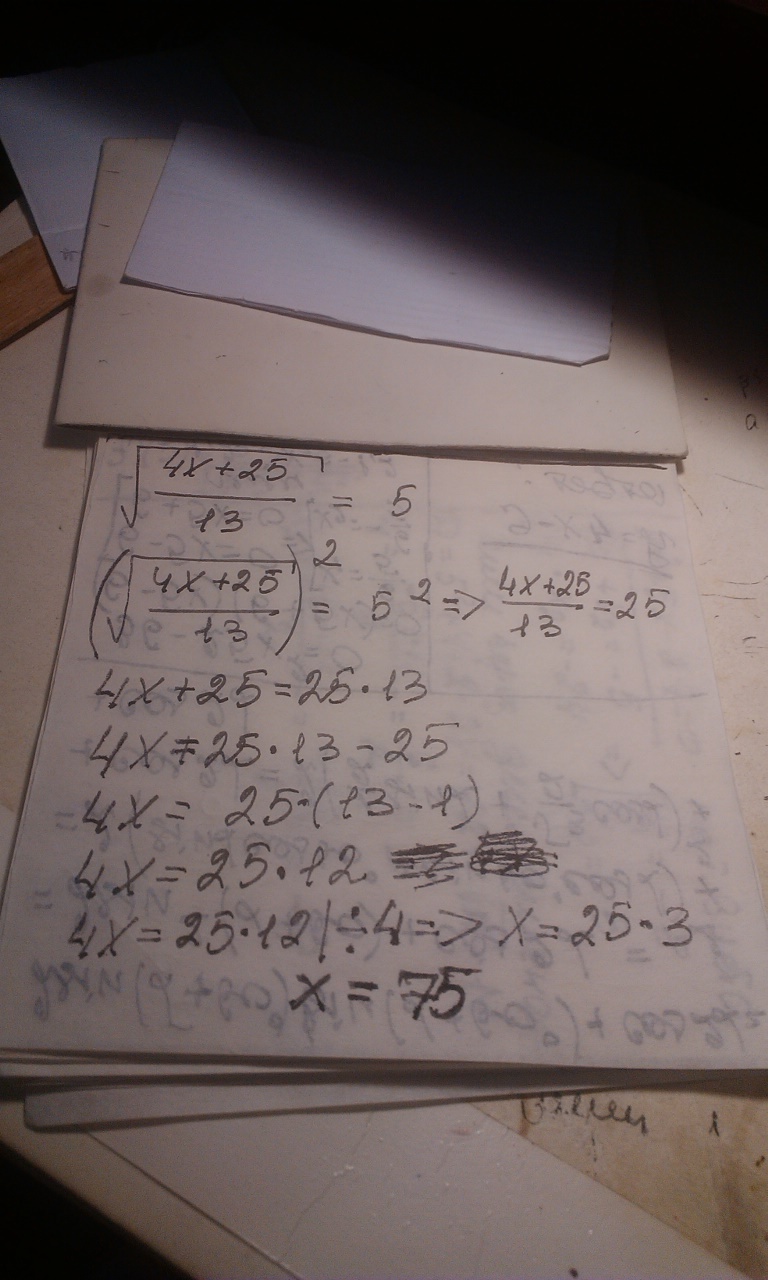 √((4x+25)/13) = 5
(√((4x+25)/13))² = 5² => (4x+25)/13 = 25
4x+25=25·13
4x=25·13-25
4x= 25·(13-1)
4x=25·12
4x=25·12|÷4=> x=25·3
x=75